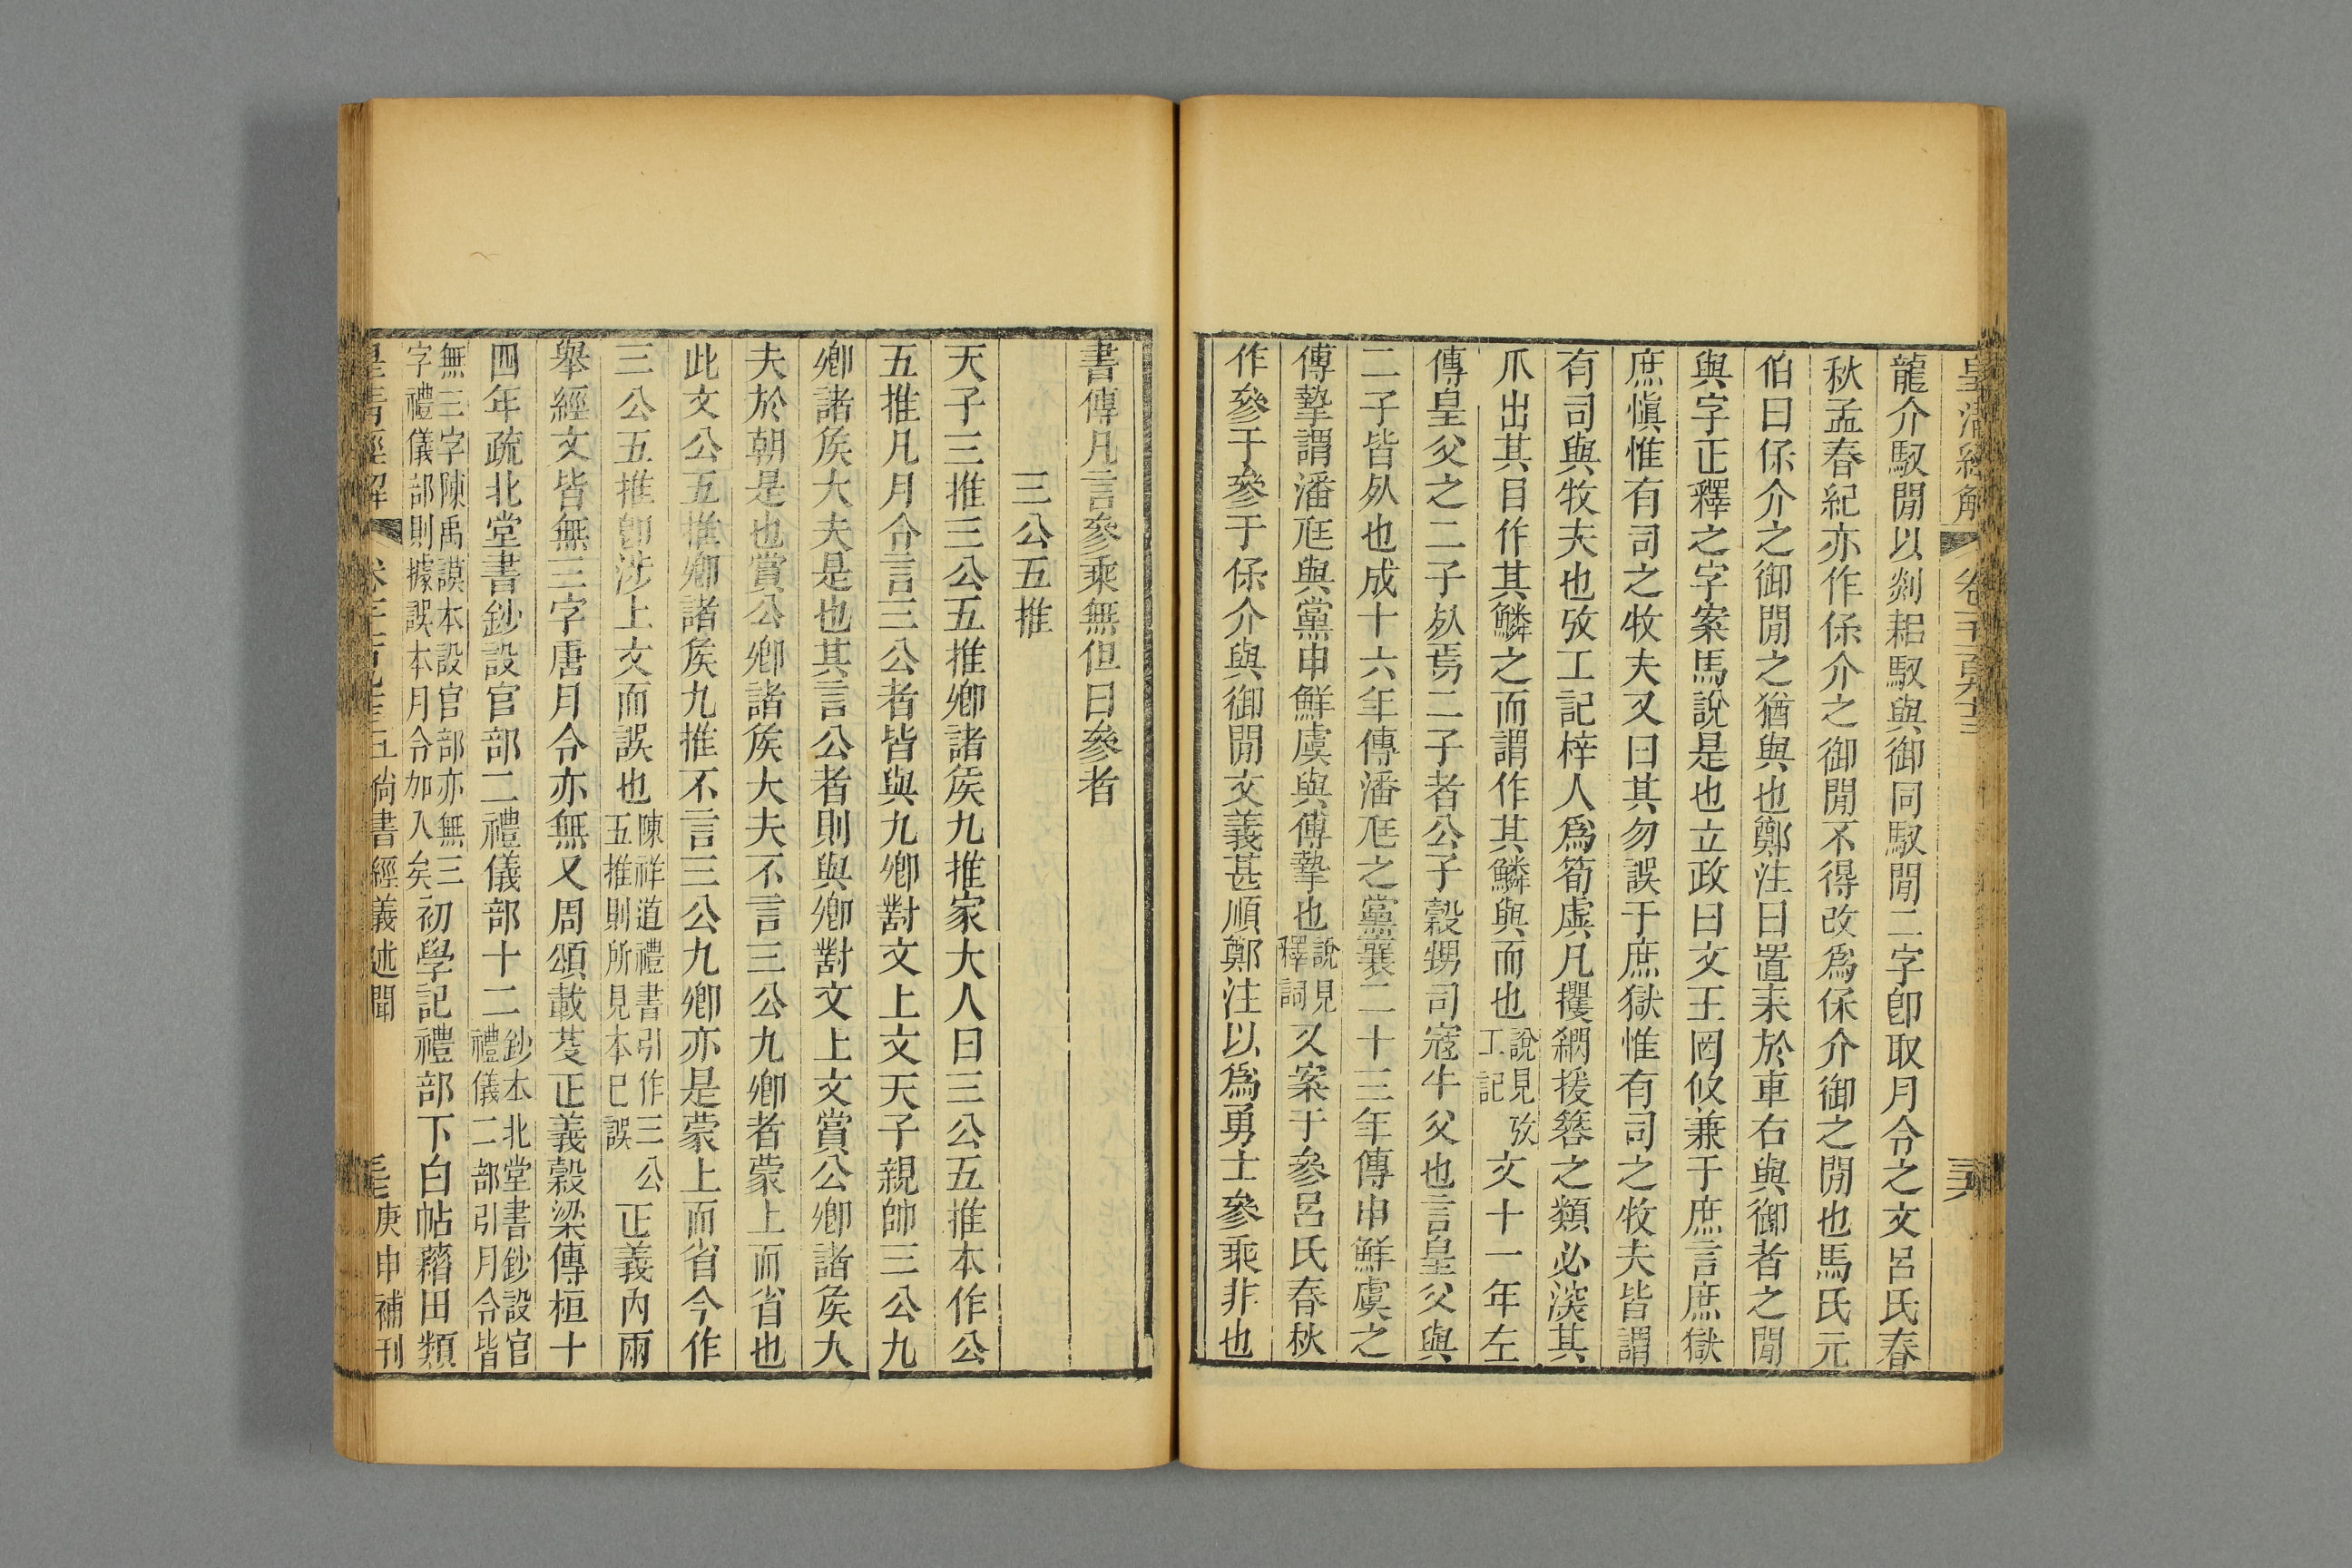 皇清經解 卷一千一百九十三 三六
龍介馭閒以剡耜馭與御同馭閒二字卽取月令之文呂氏春
秋孟春紀亦作保介之御閒不得改爲保介御之閒也馬氏元
伯曰保介之御閒之猶與也鄭注曰置耒於車右與御者之閒
與字正釋之字案馬說是也立政曰文王罔攸兼于庶言庶獄
庶愼惟有司之牧夫又曰其勿誤于庶獄惟有司之牧夫皆謂
有司與牧夫也攷工記梓人爲筍虡凡攫閷援簭之類必深其
爪出其目作其鱗之而謂作其鱗與而也說見攷工記文十一年左
傳皇父之二子死焉二子者公子穀甥司寇牛父也言皇父與
二子皆死也成十六年傳潘尫之黨襄二十三年傳申鮮虞之
傅摯謂潘尫與黨申鮮虞與傅摯也說見釋詞又案于參呂氏春秋
作參于參于保介與御閒文義甚順鄭注以爲勇士參乘非也
書傳凡言參乘無但曰參者
三公五推
天子三推三公五推卿諸矦九推家大人曰三公五推本作公
五推凡月令言三公者皆與九卿對文上文天子親帥三公九
卿諸矦大夫是也其言公者則與卿對文上文賞公卿諸矦大
夫於朝是也賞公卿諸矦大夫不言三公九卿者蒙上而省也
此文公五推卿諸矦九推不言三公九卿亦是蒙上而省今作
三公五推卽涉上文而誤也陳祥道禮書引作三公五推則所見本已誤正義內兩
舉經文皆無三字唐月令亦無又周頌載芟正義穀梁傳桓十
四年疏北堂書鈔設官部二禮儀部十二鈔本北堂書鈔設官禮儀二部引月令皆
無三字陳禹謨本設官部亦無三字禮儀部則據誤本月令加入矣初學記禮部下白帖藉田類
皇清經解 尙書經義述聞 庚申補刊